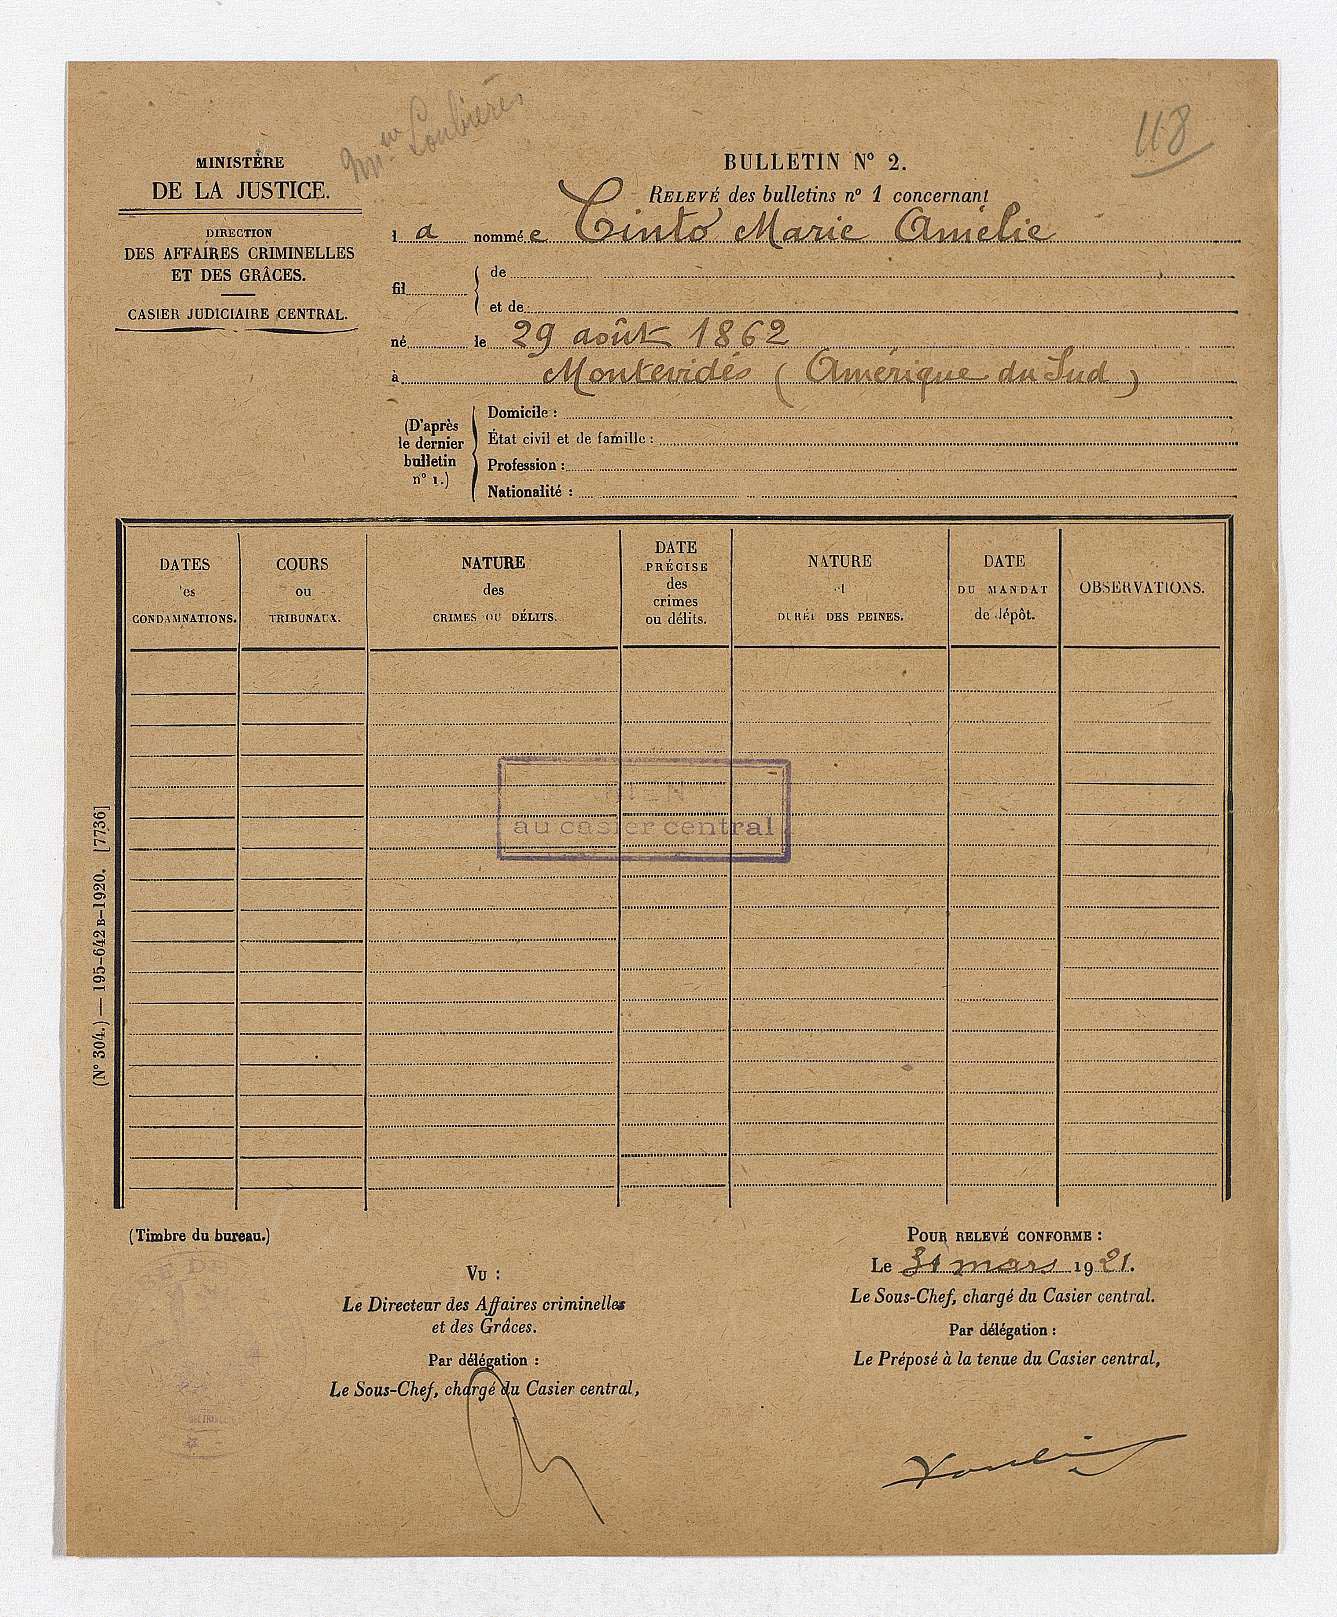 Mme Loubières
118
MINISTÈRE
DE LA JUSTICE.
DIRECTION
DES AFFAIRES CRIMINELLES
ET DES GRÂCES.
CASIER JUDICIAIRE CENTRAL.
BULLETIN N° 2.
RELEVÉ des bulletins n° 1 concernant
la nommée Tinto Marie Amélie
fil
de
et de
né le 29 août 1862
à Montevidéo (Amérique du Sud)
(D'après
le dernier
bulletin
n° 1.)
Domicile :
État civil et de famille :
Profession :
Nationalité :
DATES
des
CONDAMNATIONS.
COURS
ou
TRIBUNAUX.
NATURE
des
CRIMES OU DÉLITS.
DATE
PRÉCISE
des
crimes
ou délits.
NATURE
et
DURÉE DES PEINES.
DATE
DU MANDAT
de dépôt.
OBSERVATIONS.
au casier central
(N° 304.) — 195-642 B-1920. [7736]
(Timbre du bureau.)
VU :
Le Directeur des Affaires criminelles
et des Grâces.
Par délégation :
Le Sous-Chef, chargé du Casier central,
POUR RELEVÉ CONFORME :
Le 31 mars 1921.
Le Sous-Chef, chargé du Casier central.
Par délégation :
Le Préposé à la tenue du Casier central,